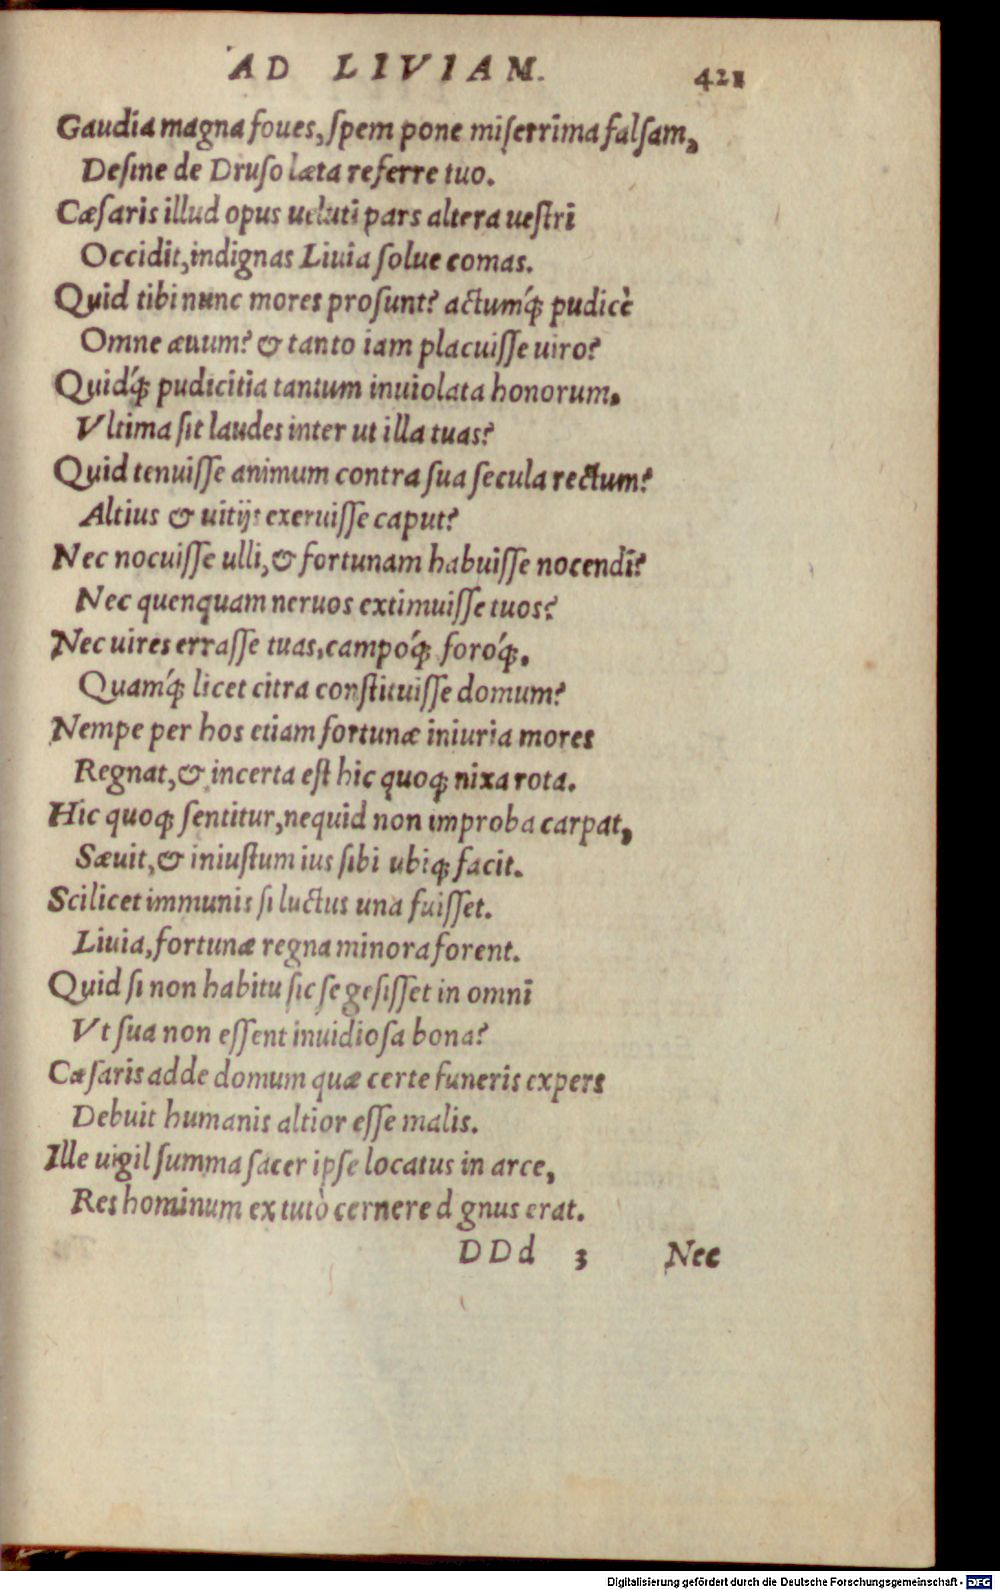 AD LIVIAM. 421
Gaudia magna foues, ſpem pone miſerrima falſam,
Deſine de Druſo læta referre tuo.
Cæſaris illud opus ueluti pars altera ueſtri
Occidit, indignas Liuia ſolue comas.
Quid tibi nunc mores proſunt? actumq́; pudicè
Omne æuum? & tanto iam placuiſſe uiro?
Quidq́; pudicitia tantum inuiolata honorum,
Vltima ſit laudes inter ut illa tuas?
Quid tenuiſſe animum contra ſua ſecula rectum?
Altius & uitijs exeruiſſe caput?
Nec nocuiſſe ulli, & fortunam habuiſſe nocendi?
Nec quenquam neruos extimuiſſe tuos?
Nec uires erraſſe tuas, campóq́; foróq́;,
Quamq́; licet citra conſtituiſſe domum?
Nempe per hos etiam fortunæ iniuria mores
Regnat, & incerta eſt hic quoq; nixa rota.
Hic quoq; ſentitur, nequid non improba carpat,
Sæuit, & iniuſtum ius ſibi ubiq; facit.
Scilicet immunis ſi luctus una fuiſſet.
Liuia, fortunæ regna minora forent.
Quid ſi non habitu ſic ſe geſiſſet in omni
Vt ſua non eſſent inuidioſa bona?
Cæſaris adde domum quæ certe funeris expers
Debuit humanis altior eſſe malis.
Ille uigil ſumma ſacer ipſe locatus in arce,
Res hominum ex tutò cernere d gnus erat.
DDd 3 Nec
Digitalisierung gefördert durch die Deutsche Forschungsgemeinschaft - DFG